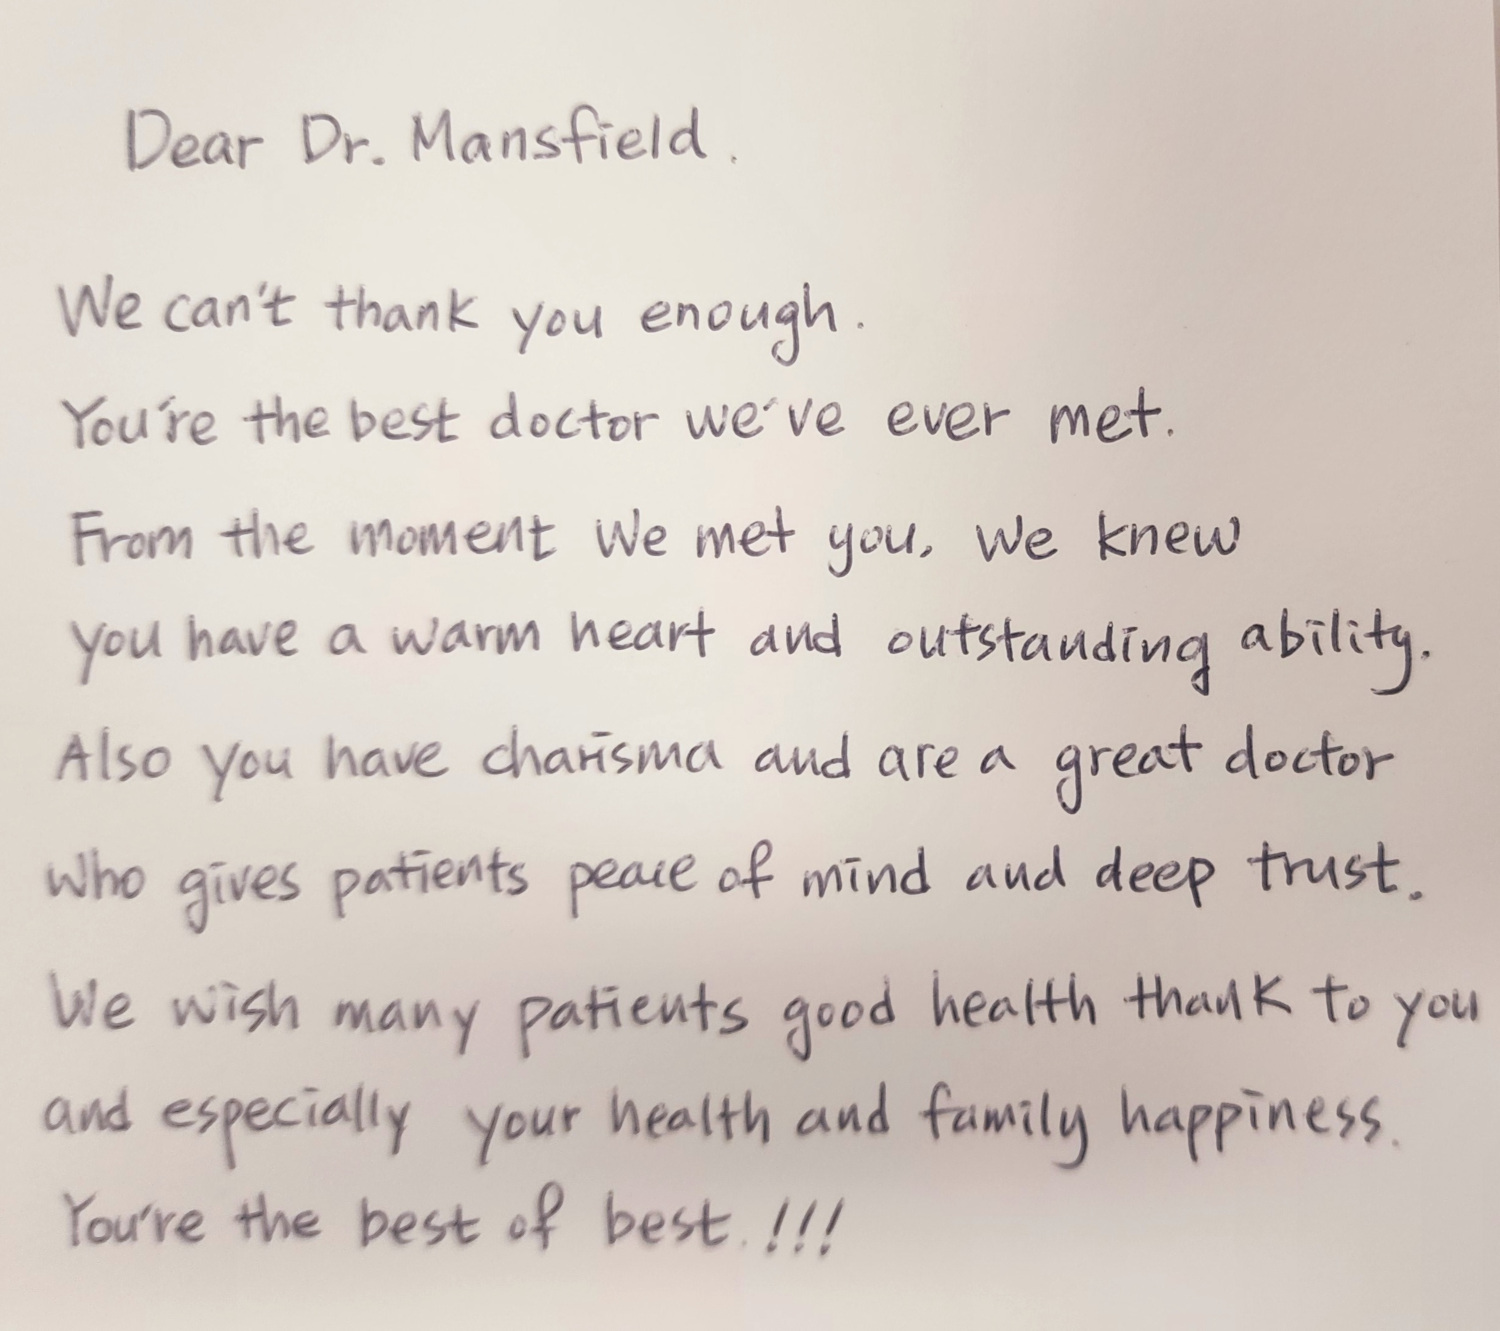 Dear Dr. Mansfield.
We can't thank you enough.
You're the best doctor we've ever met.
From the moment We met you, we knew
you have a warm heart and outstanding ability.
Also you have charisma and are a great doctor
who gives patients peace of mind and deep trust.
We wish many patients good health thank to you
and especially your health and family happiness.
You're the best of best.!!!